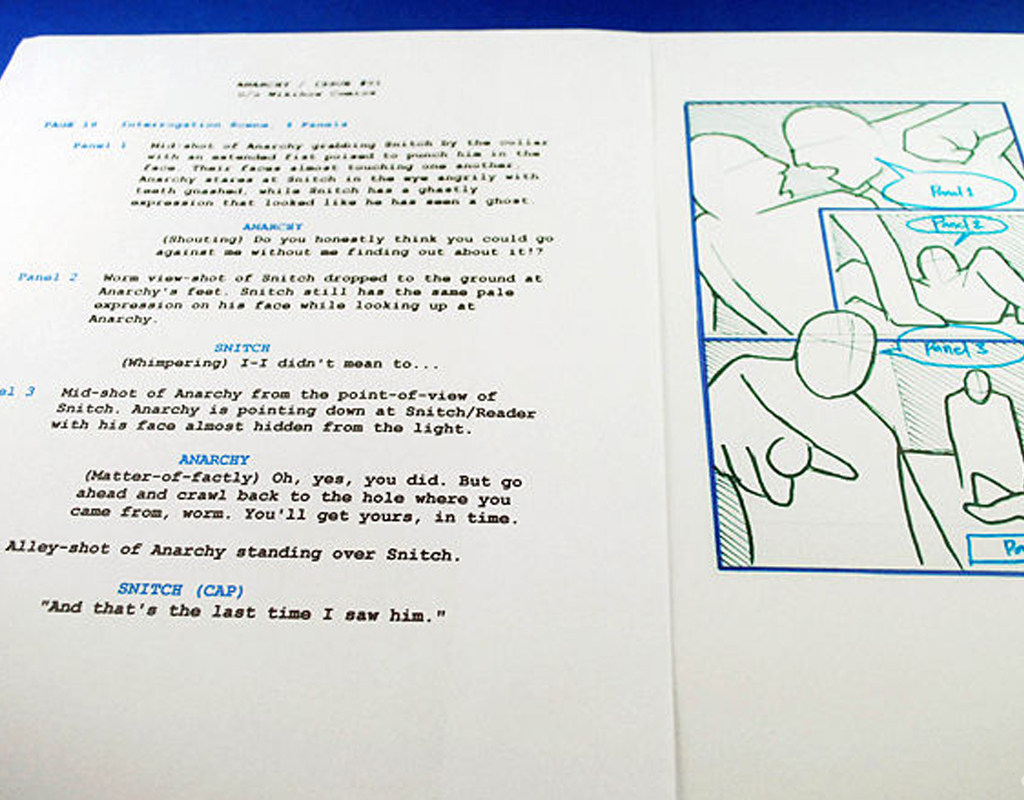 ANARCHY / ISSUE #
Wikihow Comics
PAGE 18 Interrogation Scene, 4 Panels
Panel 1 Mid-shot of Anarchy grabbing Snitch by the collar
with an extended fist poised to punch him in the
face. Their faces almost touching one another.
Anarchy stares at Snitch in the eye angrily with
teeth gnashed, while Snitch has a ghastly
expression that looked like he has seen a ghost.
ANARCHY
(Shouting) Do you honestly think you could go
against me without me finding out about it!?
Panel 2 Worm view-shot of Snitch dropped to the ground at
Anarchy's feet. Snitch still has the same pale
expression on his face while looking up at
Anarchy.
SNITCH
(Whimpering) I-I didn't mean to...
el 3 Mid-shot of Anarchy from the point-of-view of
Snitch. Anarchy is pointing down at Snitch/Reader
with his face almost hidden from the light.
ANARCHY
(Matter-of-factly) Oh, yes, you did. But go
ahead and crawl back to the hole where you
came from, worm. You'll get yours, in time.
Alley-shot of Anarchy standing over Snitch.
SNITCH (CAP)
"And that's the last time I saw him."
Panel 1
Panel 2
Panel 3
Pa